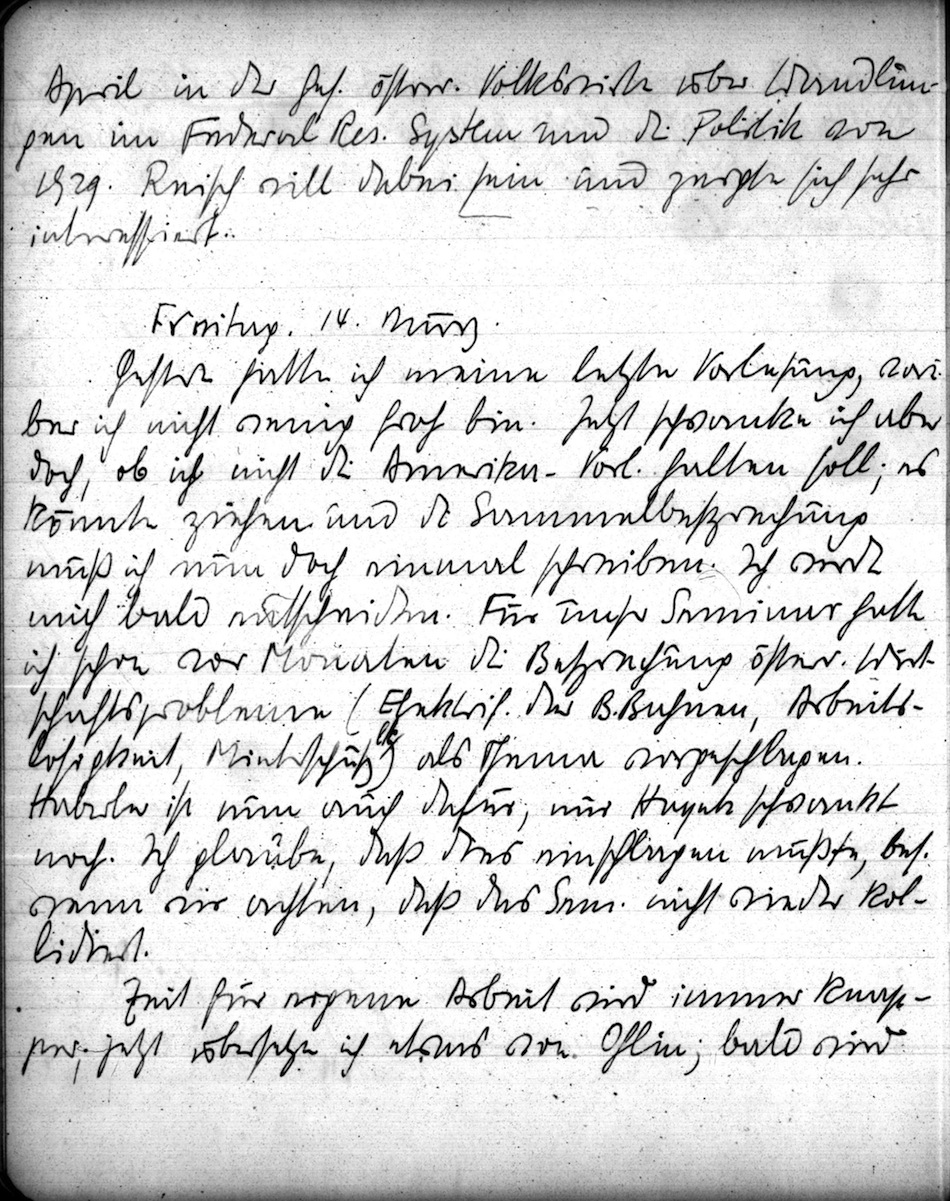 April in der Ges. österr. Volkswirte über Wandlun-
gen im Federal Res. System und die Politik von
1929. Reisch will dabei sein und zeigte sich sehr
interessiert.
Freitag. 14. März.
Gestern hatte ich meine letzte Vorlesung, worü-
ber ich nicht wenig froh bin. Jetzt schwanke ich aber
doch, ob ich nicht die Amerika-Vorl. halten soll; es
könnte ziehen und die Sammelbesprechung
muß ich nun doch einmal schreiben. Ich werde
mich bald entscheiden. Für unser Seminar hatte
ich schon vor Monaten die Besprechung österr. Wirt-
schaftsprobleme (Elektrif. der B.Bahnen, Arbeits-
losigkeit, Mieterschutz etc) als Thema vorgeschlagen.
Haberler ist nun auch dafür, nur Hayek schwankt
noch. Ich glaube, daß dies einschlagen müßte, bes.
wenn wir achten, daß das Sem. nicht wieder kol-
lidiert.
Zeit für eigene Arbeit wird immer knap-
per; jetzt übersetze ich etwas von Ohlin; bald wird